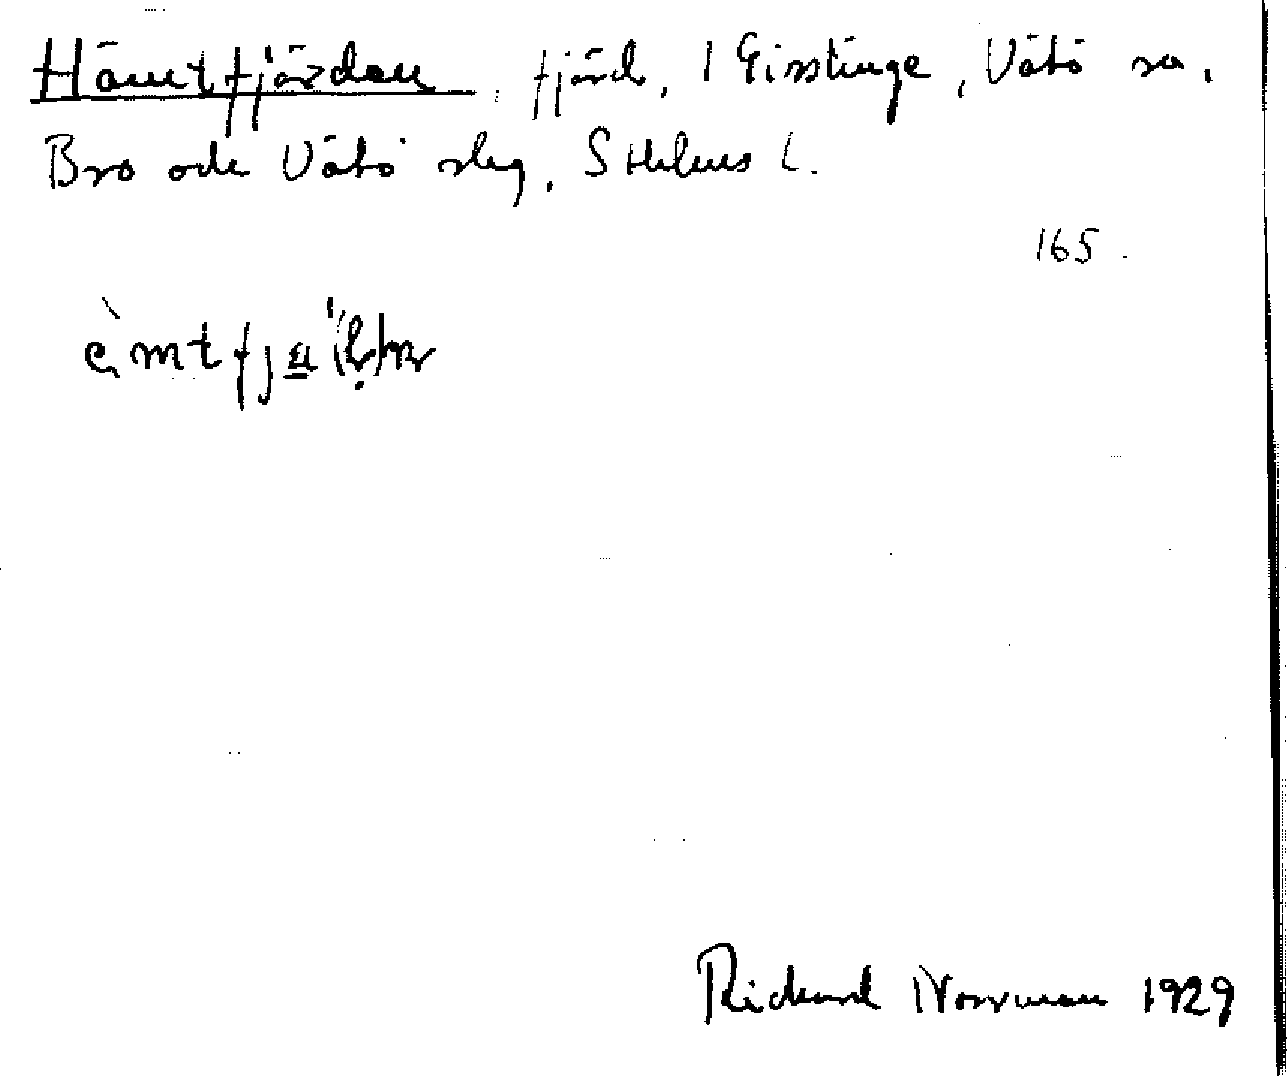 Hämtfjärden, fjärd, 1 Gisslinge, Vätö sn,
Bro och Vätö slg, Sthlms l.
165.
Richard Norrman 1929